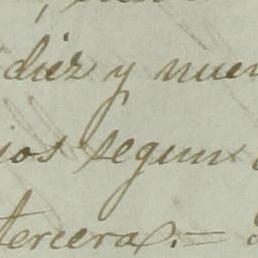 diez y nuev
ios segun
tercera.—